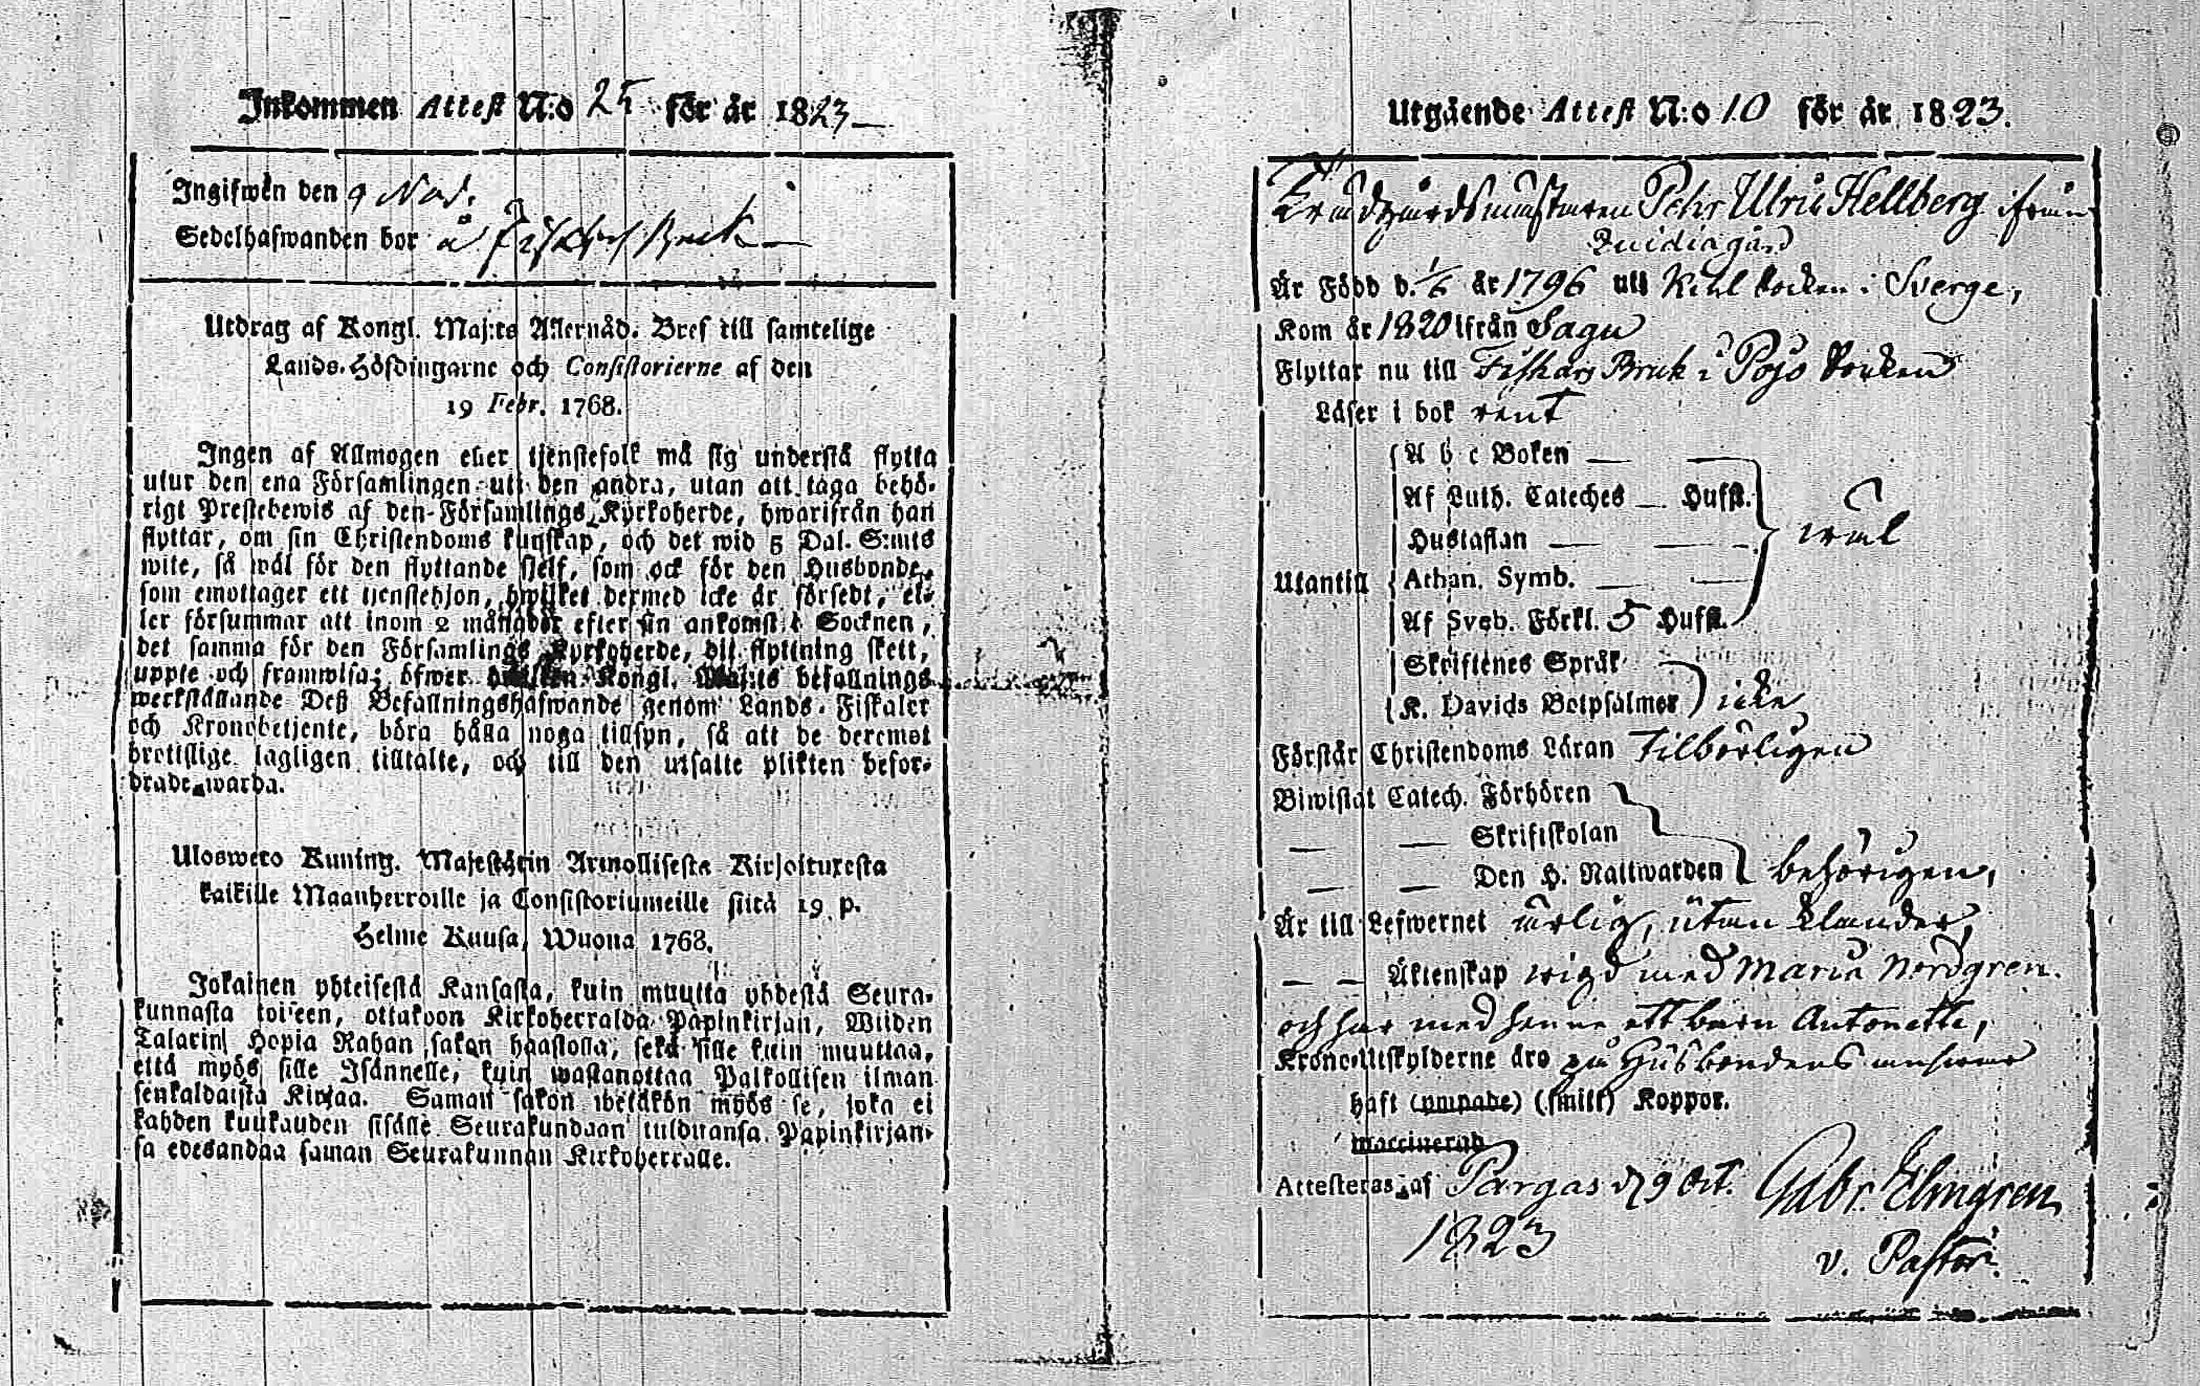 Inkommen Attest N:o 25 för år 1823
Ingifwen den 9 Nov.
Sedelhafwanden bor å Fiskars Bruk
Utdrag af Kongl. Maj:ts Allernåd. Bref till samtelige
Lands-Höfdingarne och Consistorierne af den
19 Febr. 1768.
Ingen af Allmogen eller tjenstefolk må sig understå flytta
utur den ena Församlingen uti den andra, utan att taga behö-
rigt Prestebewis af den Församlings Kyrkoherde, hwarifrån han
flyttar, om sin Christendoms kunskap, och det wid 5 Dal. S:mts
wite, så wäl för den flyttande sjelf, som ock för den Husbonde,
som emottager ett tjenstehjon, hwilket dermed icke är försedt, el-
ler försummar att inom 2 månader efter sin ankomst i Socknen,
det samma för den Församlings Kyrkoherde, dit flyttning skett,
uppte och framwisa; öfwer Kongl. Maj:ts befallnings
werkställande Deß Befallningshafwande genom Lands-Fiskaler
och Kronobetjente, böra hålla noga tillsyn, så att de deremot
brottslige lagligen tilltalte, och till den utsatte plikten befor-
drade warda.
Ulosweto Kuning. Majestätin Armollisesta Kirjoituxesta
kaikille Maanherroille ja Consistoriumeille siitä 19. p.
Helme Kuusa, Wuona 1768.
Jokainen yhteisestä Kansasta, kuin muutta yhdestä Seura-
kunnasta toiseen, ottakoon Kirkoherralda Papinkirjan, Wiiden
Talarin Hopia Rahan sakon haastolla, sekä sille kuin muuttaa,
että myös sille Isännelle, kuin wastanottaa Palkollisen ilman
senkaldaista Kirjaa. Saman sakon wetäkön myös se, joka ei
kahden kuukauden sisälle Seurakundaan tulduansa, Papinkirjan-
sa edesandaa saman Seurakunnan Kirkoherralle.
Utgående Attest N:o 10 för år 1823.
Trädgårdsmästaren Pehr Ulric Hellberg ifrån
Qvidjagård
Är Född d. 1/6 år 1796 uti Kihl Socken i Sverge,
Kom år 1820 ifrån Sagu
Flyttar nu till Fiskars Bruk i Pojo Socken
Läser i bok rent
A b c Boken
Af Luth. Cateches Hufst.
Hustaflan wäl
Utantill Athan. Symb.
Af Sveb. Förkl. 5 Hufst.
Skriftenes Språk
K. Davids Botpsalmer icke
Förstår Christendoms Läran tilbörligen
Biwistat Catech. Förhören
Skriftskolan
Den H. Nattwarden behörigen,
Är till Lefwernet ärlig, utan klander,
Äktenskap wigd med Maria Nordgren.
och har med henne ett barn Antonette,
Krono-Utskylderne äro på Husbondens ansvar
haft (ympade) (smitt) Koppor.
vaccinerad
Attesteras af Pargas d 9 Oct. Gabr. Elmgren
1823 v. Pastor.